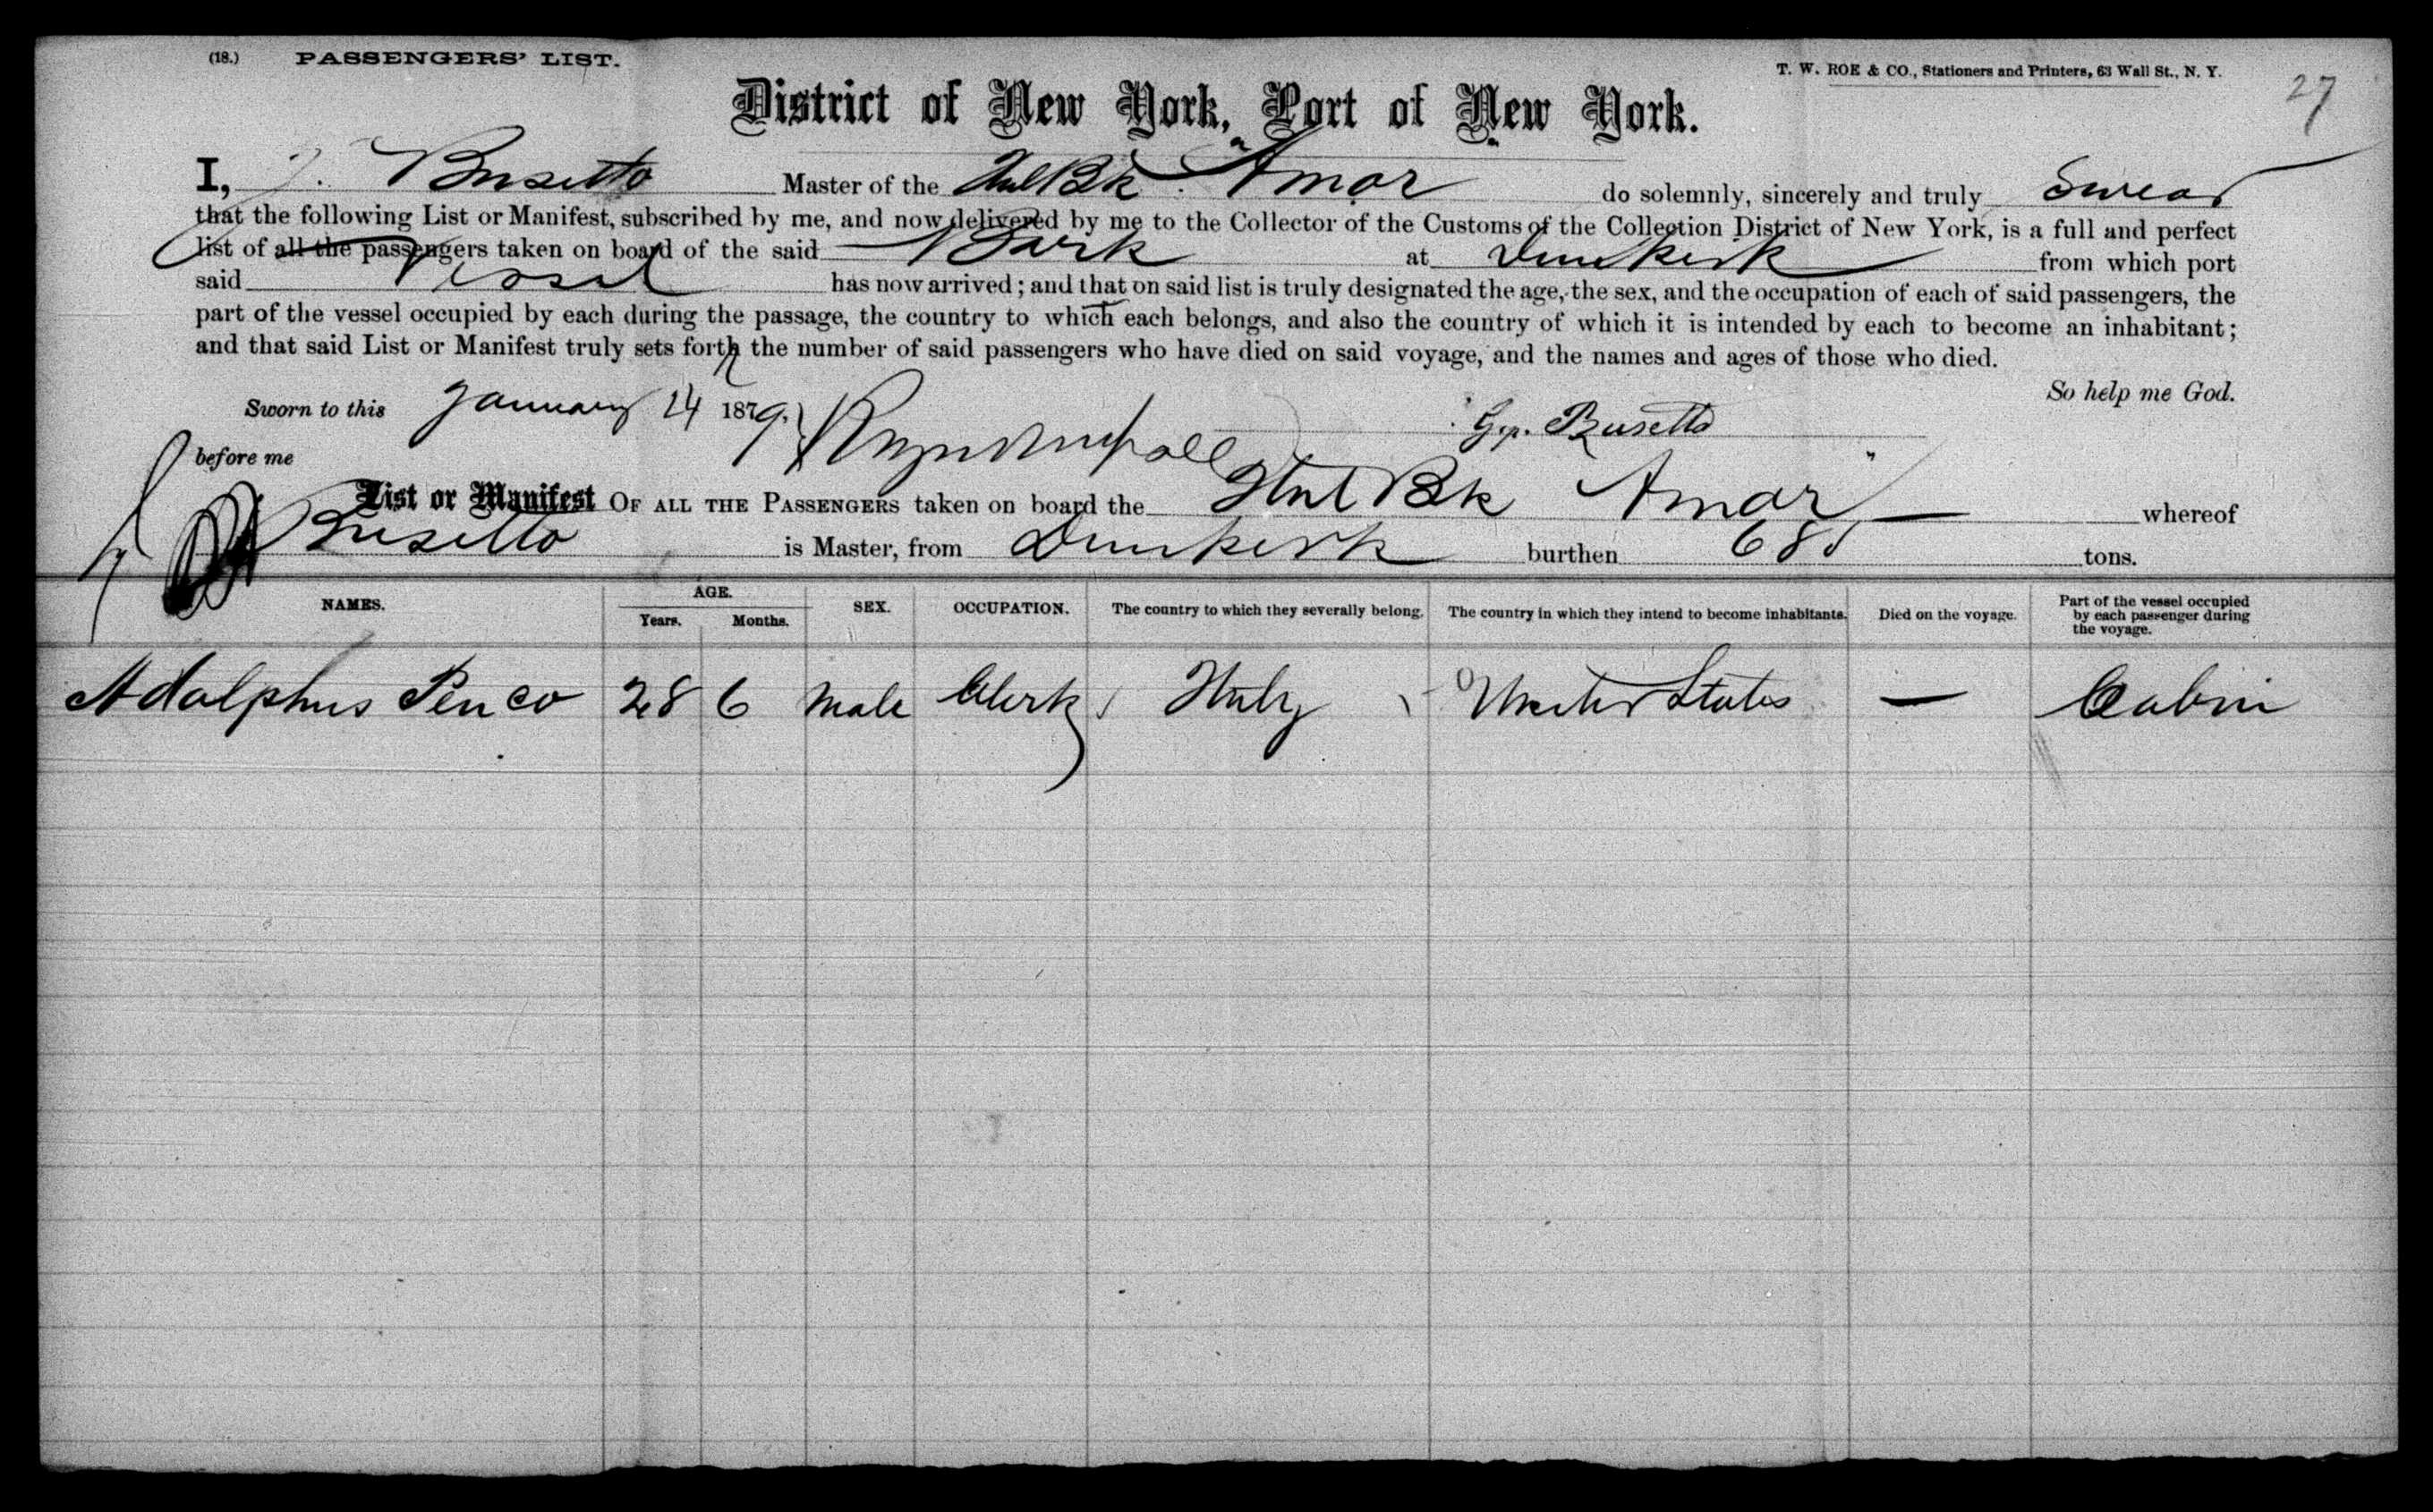 (18.) PASSENGERS' LIST.
T. W. ROE & CO., Stationers and Printers, 63 Wall St., N. Y.
27
District of New York, Port of New York.
I, Busetto Master of the Ital Bk. "Amor" do solemnly, sincerely and truly Swear
that the following List or Manifest, subscribed by me, and now delivered by me to the Collector of the Customs of the Collection District of New York, is a full and perfect
list of all the passengers taken on board of the said Bark at Dunkirk from which port
said Vessel has now arrived; and that on said list is truly designated the age, the sex, and the occupation of each of said passengers, the
part of the vessel occupied by each during the passage, the country to which each belongs, and also the country of which it is intended by each to become an inhabitant;
and that said List or Manifest truly sets forth the number of said passengers who have died on said voyage, and the names and ages of those who died.
So help me God.
Sworn to this January 14 1879.
Busetto
before me
List or Manifest OF ALL THE PASSENGERS taken on board the Ital Bk Amor" whereof
Busetto is Master, from Dunkirk burthen tons.
NAMES. AGE. Years. Months. SEX. OCCUPATION. The country to which they severally belong. The country in which they intend to become inhabitants. Died on the voyage. Part of the vessel occupied by each passenger during the voyage.
Adolphus Penco 28 6 Male Clerk Italy United States — Cabin